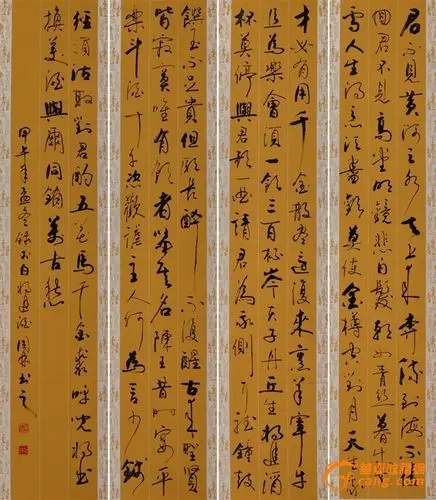 君不見黄河之水天上來奔流到海不
回君不見高堂明鏡悲白髮朝如青絲暮成
雪人生得意須盡歡莫使金樽空對月天生我
才必有用千金散盡還復來烹羊宰牛
且為樂會須一飲三百杯岑夫子丹丘生將進酒
杯莫停與君歌一曲請君為我側耳聽鐘鼓
饌玉不足貴但願長醉不復醒古來聖賢
皆寂寞唯有飲者留其名陳王昔時宴平
樂斗酒十千恣歡謔主人何為言少錢
徑須沽取對君酌五花馬千金裘呼兒將出
換美酒與爾同銷萬古愁
甲午年孟冬錄李白將進酒書之
华夏收藏网